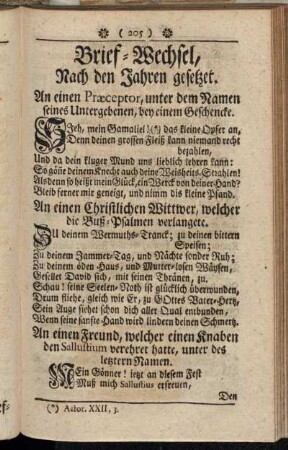 ( 205 )
Brief-Wechsel,
Nach den Jahren gesetzet.
An einen Præceptor, unter dem Namen
seines Untergebenen, bey einem Geschencke.
Seh, mein Gamaliel! (*) das kleine Opfer an,
Denn deinen grossen Fleiß kann niemand recht
bezahlen,
Und da dein kluger Mund uns lieblich lehren kann:
So gönne deinem Knecht auch deine Weisheits-Strahlen!
Alsdenn so heißt mein Glück, ein Werck von deiner Hand?
Bleib ferner mir geneigt, und nimm dis kleine Pfand.
An einen Christlichen Wittwer, welcher
die Buß-Psalmen verlanget.
Zu deinem Wermuths-Tranck; zu deinen bittern
Speisen;
Zu deinem Jammer-Tag, und Nächte sonder Ruh;
Zu deinem öden Haus, und Mutter-losen Wäysen,
Gesellet David sich, mit seinen Thränen, zu.
Schau! seine Seelen-Noth ist glücklich überwunden,
Drum fliehe, gleich wie Er, zu GOttes Vater-Hertz,
Sein Auge siehet schon dich aller Qual entbunden,
Wenn seine sanfte-Hand wird lindern deinen Schmertz.
An einen Freund, welcher einen Knaben
den Sallustium verehret hatte, unter des
letztern Namen.
Mein Gönner! jetzt an diesem Fest
Muß mich Sallustius erfreuen,
Den
(*) Actor. XXII, 3.